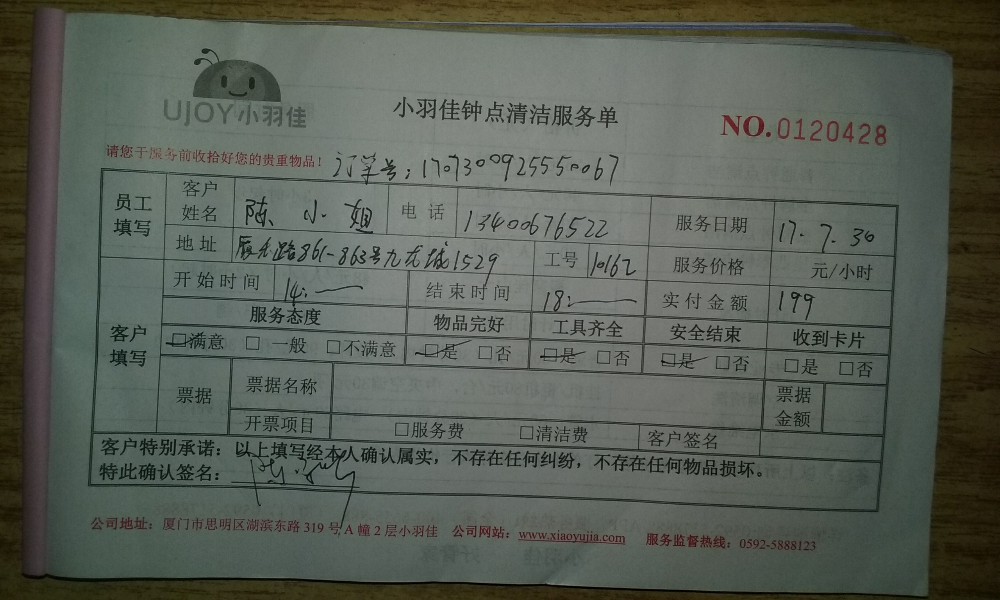 UJOY小羽佳
小羽佳钟点清洁服务单
NO.0120428
请您于服务前收拾好您的贵重物品！ 订单号：17073009255550067
员工填写 客户姓名 陈小姐 电话 13400676522 服务日期 17.7.30
地址 861-863号九龙城1529 工号 10162 服务价格 元/小时
客户填写 开始时间 14: 结束时间 18: 实付金额 199
服务态度 物品完好 工具齐全 安全结束 收到卡片
□满意 □一般 □不满意 □是 □否 □是 □否 □是 □否 □是 □否
票据 票据名称 票据金额
开票项目 □服务费 □清洁费 客户签名
客户特别承诺：以上填写经本人确认属实，不存在任何纠纷，不存在任何物品损坏。
特此确认签名：
公司地址：厦门市思明区湖滨东路319号A幢2层小羽佳 公司网站：www.xiaoyujia.com 服务监督热线：0592-5888123